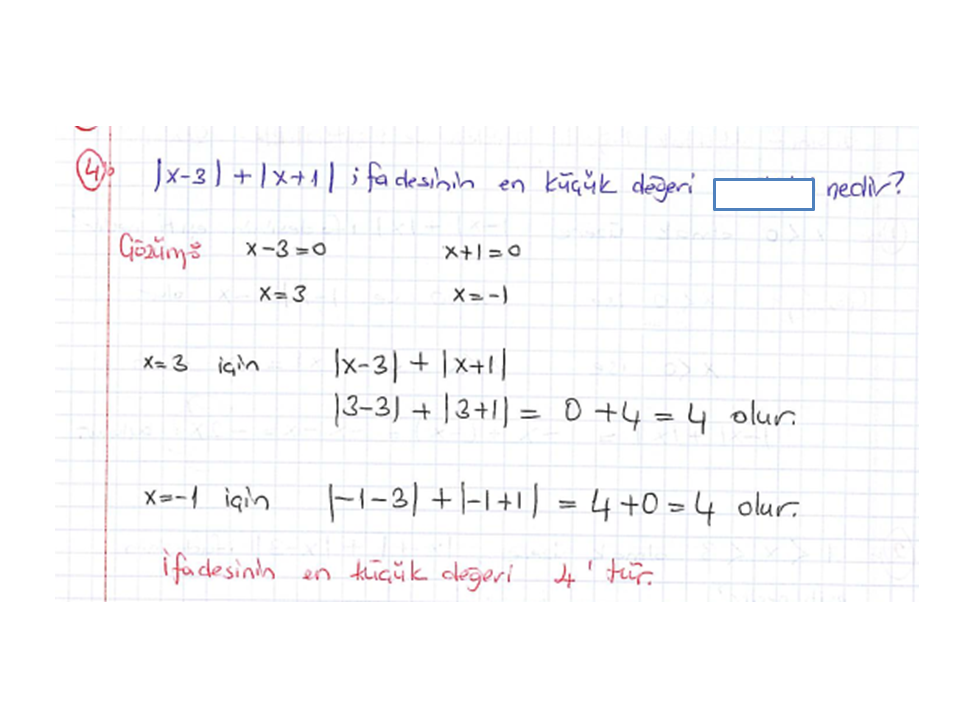 4) |x-3| + |x+1| ifadesinin en küçük değeri nedir?
Çözüm: x-3=0 x+1=0
x=3 x=-1
x=3 için |x-3| + |x+1|
|3-3| + |3+1| = 0+4 = 4 olur.
x=-1 için |-1-3| + |-1+1| = 4+0 = 4 olur.
İfadesinin en küçük değeri 4'tür.